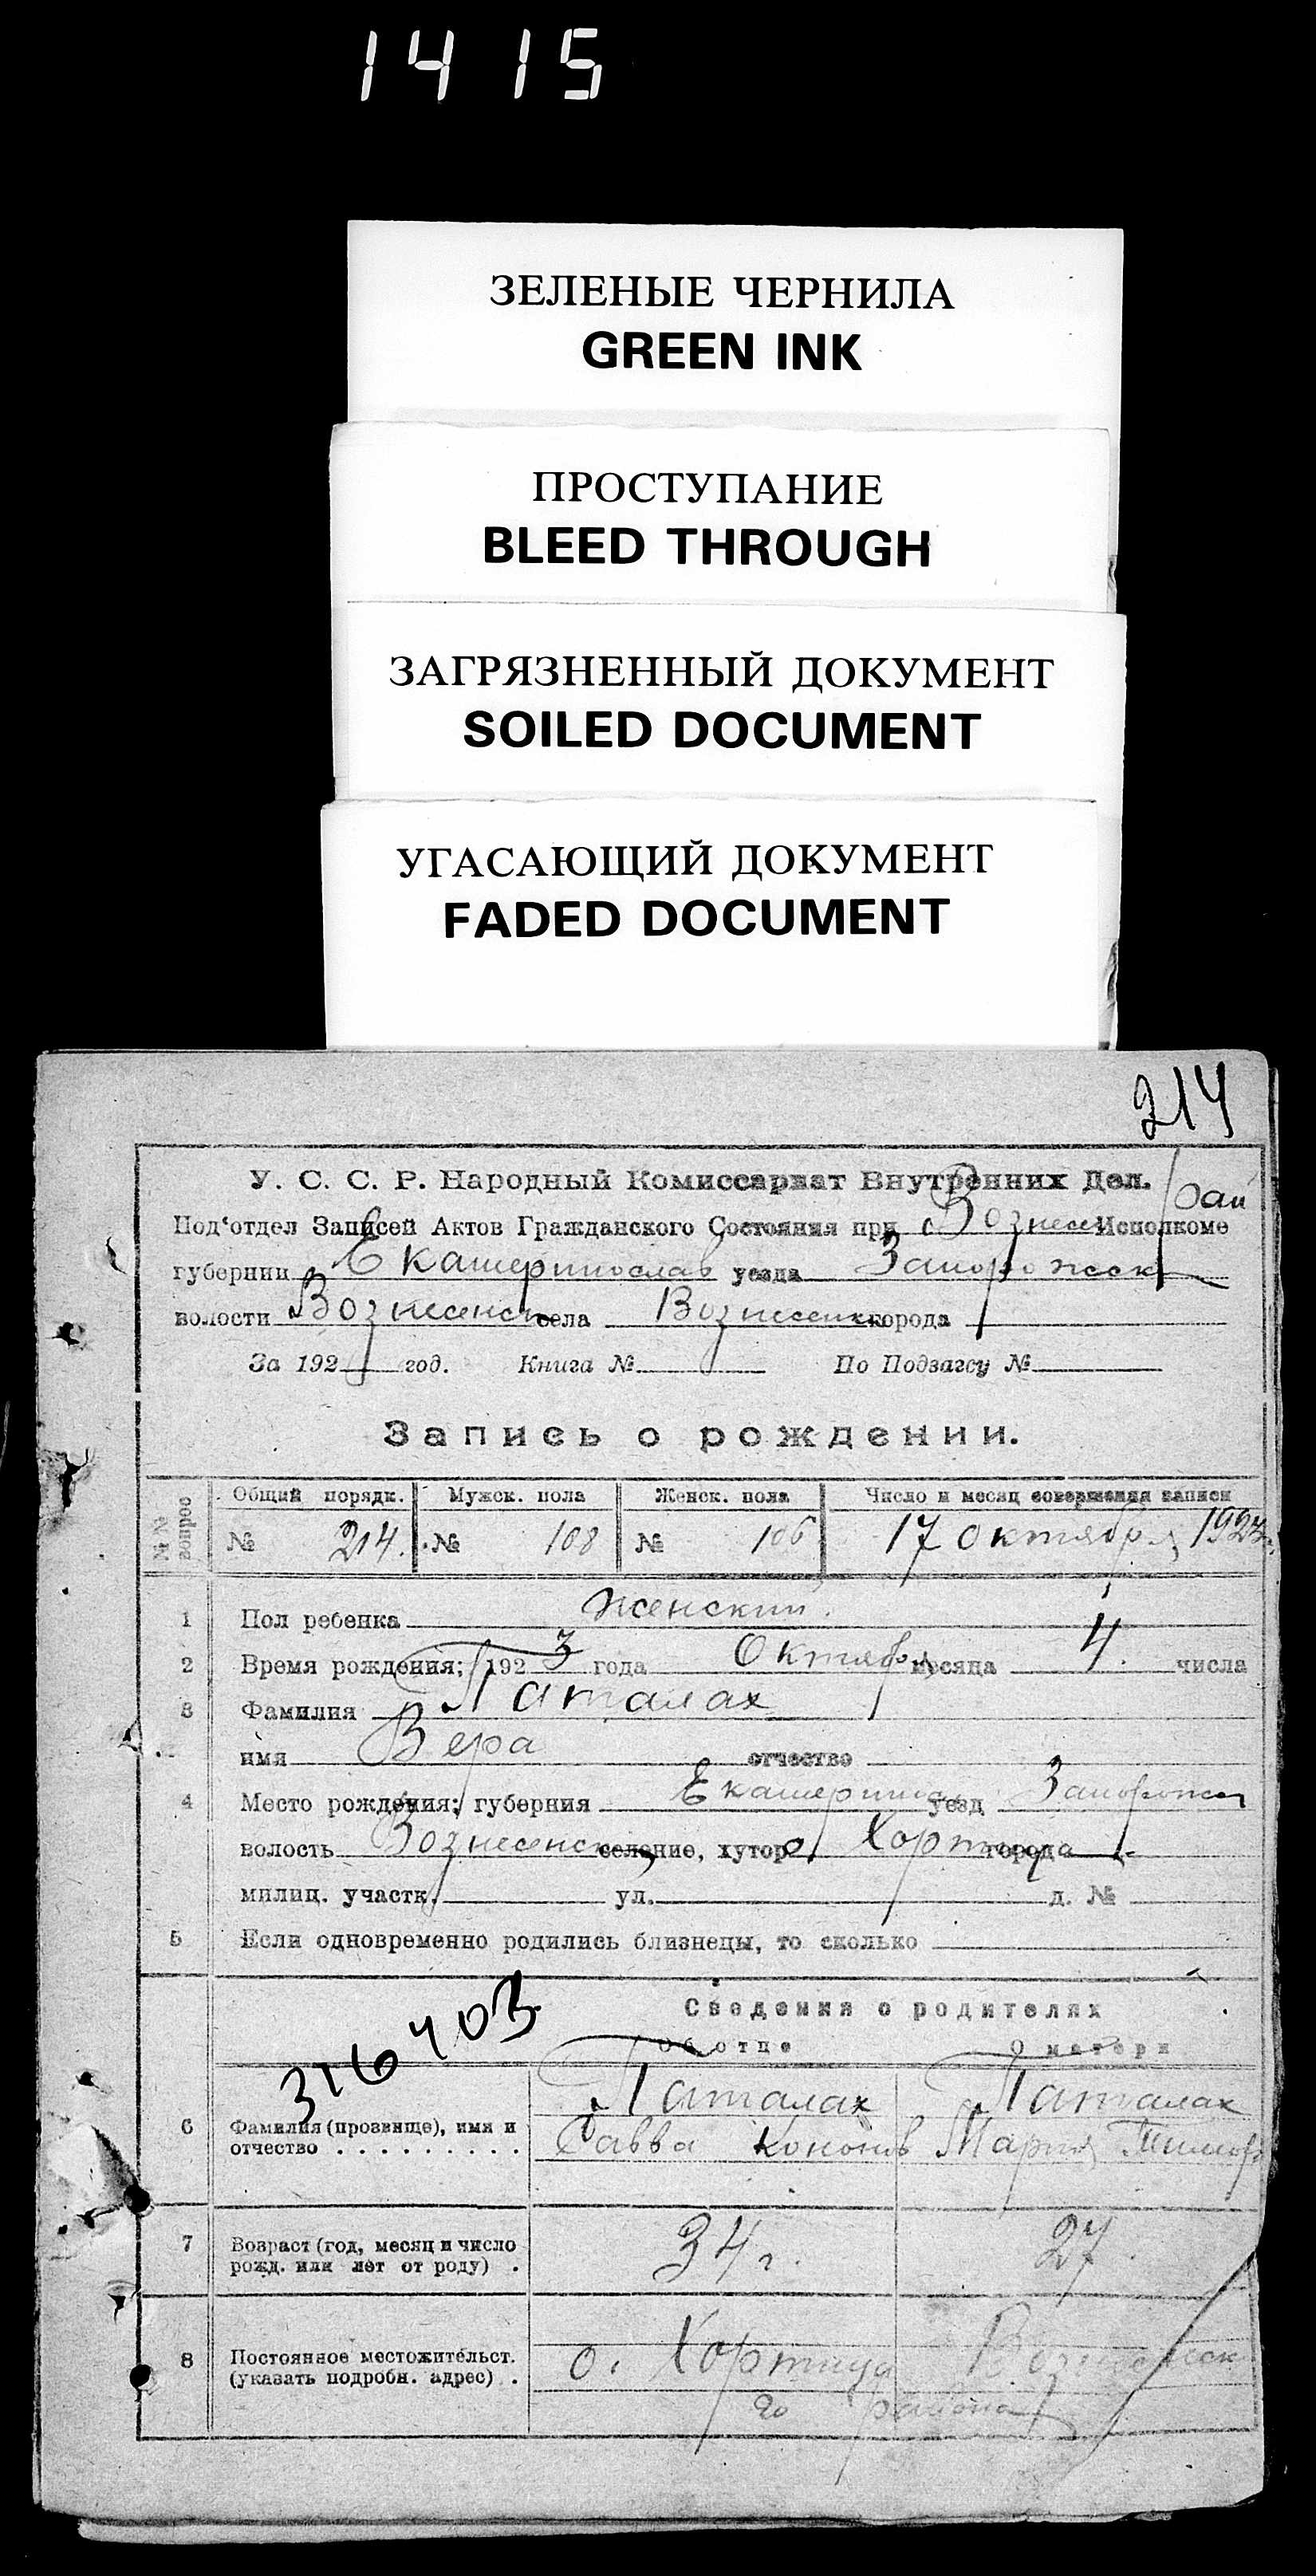 1415
ЗЕЛЕНЫЕ ЧЕРНИЛА
GREEN INK
ПРОСТУПАНИЕ
BLEED THROUGH
ЗАГРЯЗНЕННЫЙ ДОКУМЕНТ
SOILED DOCUMENT
УГАСАЮЩИЙ ДОКУМЕНТ
FADED DOCUMENT
214
У. С. С. Р. Народный Комиссариат Внутренних Дел.
Под‘отдел Записей Актов Гражданского Состояния при Вознесен Рай Исполкоме
губернии Екатеринослав уезда Запорожск
волости Вознесенск села Вознесенк города
За 192 год. Книга № По Подзагсу №
Запись о рождении.
№№ вопрос Общий порядк. Мужск. пола Женск. пола Число и месяц совершения записи
№ 214. № 108 № 106 17 октября 1923 г.
1 Пол ребенка женский.
2 Время рождения; 1923 года Октября месяца 4. числа
3 Фамилия Паталах
имя Вера отчество
4 Место рождения; губерния Екатерино уезд Запорожск
волость Вознесенск селение, хутор о. Хортица города
милиц. участк. ул. д. №
5 Если одновременно родились близнецы, то сколько
Сведения о родителях
316403
Об отце О матери
Паталах Паталах
6 Фамилия (прозвище), имя и отчество Савва Кононов Мария Тимоф
7 Возраст (год, месяц и число рожд. или лет от роду) . 34 г. 27.
8 Постоянное местожительст. (указать подробн. адрес) . о. Хортица Вознесенск
го района